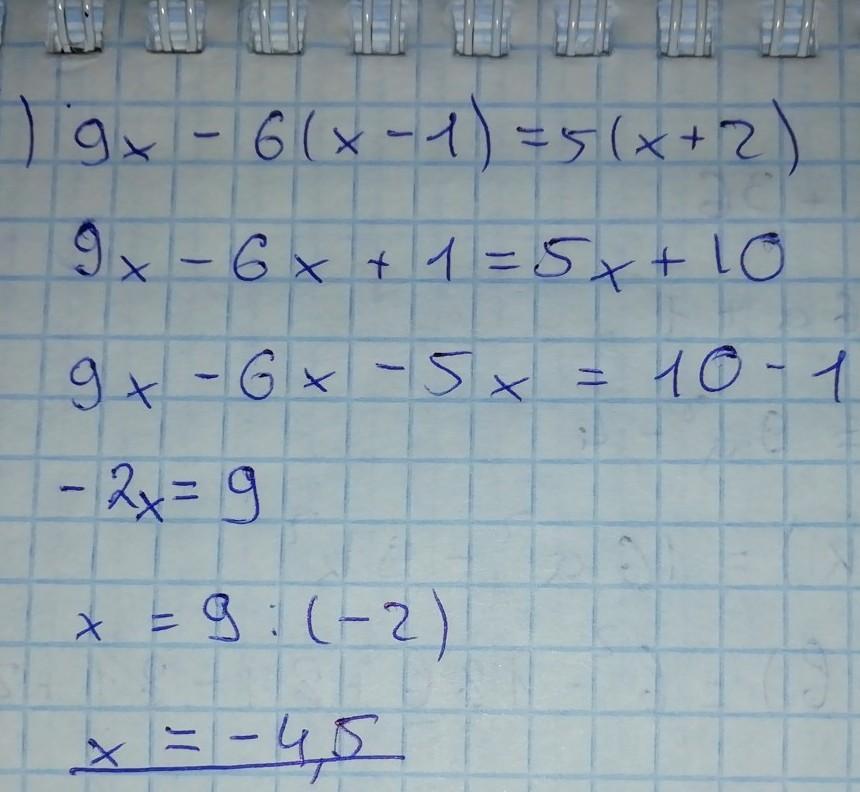 ) 9x - 6(x - 1) = 5(x + 2)
9x - 6x + 1 = 5x + 10
9x - 6x - 5x = 10 - 1
- 2x = 9
x = 9 : (-2)
x = -4,5